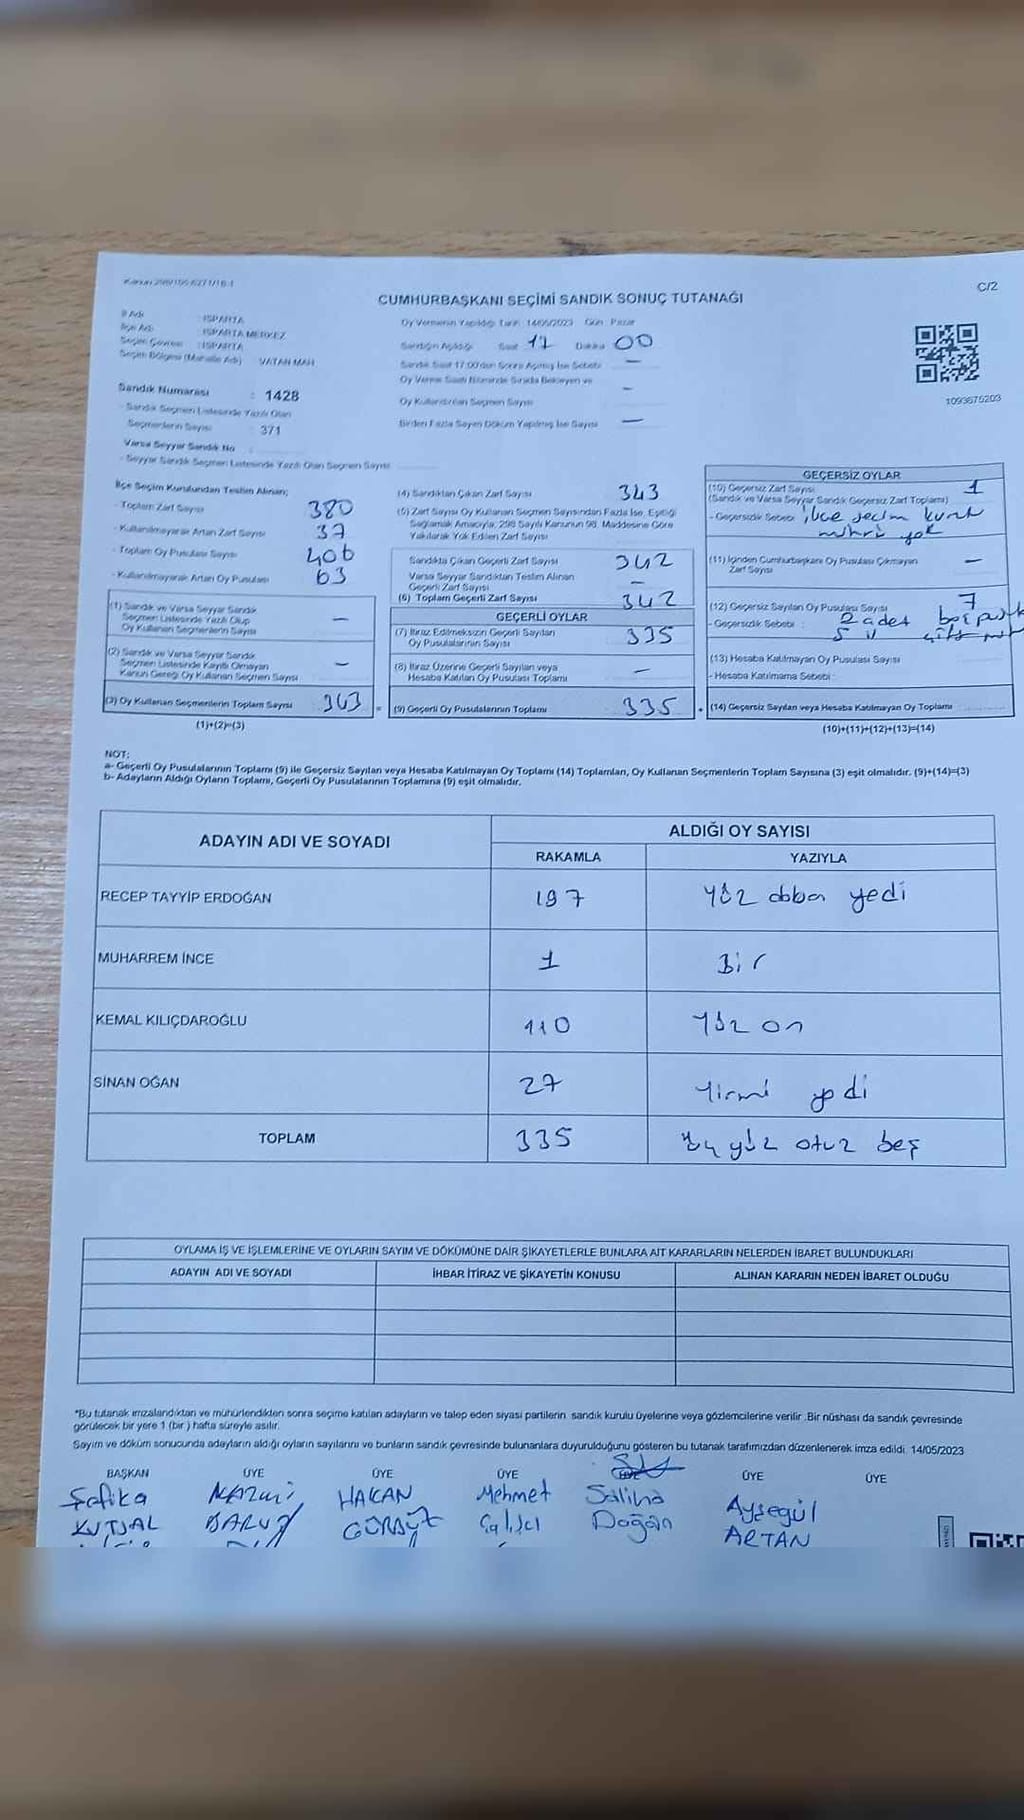 C/2
CUMHURBAŞKANI SEÇİMİ SANDIK SONUÇ TUTANAĞI
İl Adı : ISPARTA
İlçe Adı : ISPARTA MERKEZ
Seçim Çevresi : ISPARTA
Seçim Bölgesi (Mahalle Adı) VATAN MAH
Oy Vermenin Yapıldığı Tarih 14/05/2023 Gün Pazar
Sandığın Açıldığı Saat 17 Dakika 00
Sandık Saat 17:00'den Sonra Açılmış İse Sebebi —
Oy Verme Saati Bitiminde Sırada Bekleyen ve
Oy Kullandırılan Seçmen Sayısı –
Birden Fazla Sayım Döküm Yapılmış İse Sayısı —
1093675203
Sandık Numarası : 1428
- Sandık Seçmen Listesinde Yazılı Olan
Seçmenlerin Sayısı : 371
Varsa Seyyar Sandık No :
- Seyyar Sandık Seçmen Listesinde Yazılı Olan Seçmen Sayısı
İlçe Seçim Kurulundan Teslim Alınan;
- Toplam Zarf Sayısı 380
- Kullanılmayarak Artan Zarf Sayısı 37
- Toplam Oy Pusulası Sayısı 406
- Kullanılmayarak Artan Oy Pusulası 63
(1) Sandık ve Varsa Seyyar Sandık
Seçmen Listesinde Yazılı Olup
Oy Kullanan Seçmenlerin Sayısı —
(2) Sandık ve Varsa Seyyar Sandık
Seçmen Listesinde Kayıtlı Olmayan
Kanun Gereği Oy Kullanan Seçmen Sayısı —
(3) Oy Kullanan Seçmenlerin Toplam Sayısı 343 =
(1)+(2)=(3)
(4) Sandıktan Çıkan Zarf Sayısı 343
(5) Zarf Sayısı Oy Kullanan Seçmen Sayısından Fazla İse, Eşitliği
Sağlamak Amacıyla, 298 Sayılı Kanunun 98. Maddesine Göre
Yakılarak Yok Edilen Zarf Sayısı
Sandıkta Çıkan Geçerli Zarf Sayısı 342
Varsa Seyyar Sandıktan Teslim Alınan
Geçerli Zarf Sayısı –
(6) Toplam Geçerli Zarf Sayısı 342
GEÇERLİ OYLAR
(7) İtiraz Edilmeksizin Geçerli Sayılan
Oy Pusulalarının Sayısı 335
(8) İtiraz Üzerine Geçerli Sayılan veya
Hesaba Katılan Oy Pusulası Toplamı —
(9) Geçerli Oy Pusulalarının Toplamı 335
GEÇERSİZ OYLAR
(10) Geçersiz Zarf Sayısı 1
(Sandık ve Varsa Seyyar Sandık Geçersiz Zarf Toplamı)
- Geçersizlik Sebebi : ilçe seçim kurul
mührü yok
(11) İçinden Cumhurbaşkanı Oy Pusulası Çıkmayan
Zarf Sayısı —
(12) Geçersiz Sayılan Oy Pusulası Sayısı 7
- Geçersizlik Sebebi : 2 adet boş
5 "
(13) Hesaba Katılmayan Oy Pusulası Sayısı
- Hesaba Katılmama Sebebi :
(14) Geçersiz Sayılan veya Hesaba Katılmayan Oy Toplamı
(10)+(11)+(12)+(13)=(14)
NOT:
a- Geçerli Oy Pusulalarının Toplamı (9) ile Geçersiz Sayılan veya Hesaba Katılmayan Oy Toplamı (14) Toplamları, Oy Kullanan Seçmenlerin Toplam Sayısına (3) eşit olmalıdır. (9)+(14)=(3)
b- Adayların Aldığı Oyların Toplamı, Geçerli Oy Pusulalarının Toplamına (9) eşit olmalıdır.
ADAYIN ADI VE SOYADI ALDIĞI OY SAYISI
RAKAMLA YAZIYLA
RECEP TAYYİP ERDOĞAN 197 Yüz doksan yedi
MUHARREM İNCE 1 Bir
KEMAL KILIÇDAROĞLU 110 Yüz on
SİNAN OĞAN 27 Yirmi yedi
TOPLAM 335 Üç yüz otuz beş
OYLAMA İŞ VE İŞLEMLERİNE VE OYLARIN SAYIM VE DÖKÜMÜNE DAİR ŞİKAYETLERLE BUNLARA AİT KARARLARIN NELERDEN İBARET BULUNDUKLARI
ADAYIN ADI VE SOYADI İHBAR İTİRAZ VE ŞİKAYETİN KONUSU ALINAN KARARIN NEDEN İBARET OLDUĞU
*Bu tutanak imzalandıktan ve mühürlendikten sonra seçime katılan adayların ve talep eden siyasi partilerin sandık kurulu üyelerine veya gözlemcilerine verilir .Bir nüshası da sandık çevresinde
görülecek bir yere 1 (bir ) hafta süreyle asılır.
Sayım ve döküm sonucunda adayların aldığı oyların sayılarını ve bunların sandık çevresinde bulunanlara duyurulduğunu gösteren bu tutanak tarafımızdan düzenlenerek imza edildi. 14/05/2023
BAŞKAN ÜYE ÜYE ÜYE ÜYE ÜYE ÜYE
Şafika Nazmi HAKAN Mehmet Saliha Ayşegül
KUTSAL GÜRBÜZ Çalışcı Doğan ARTAN